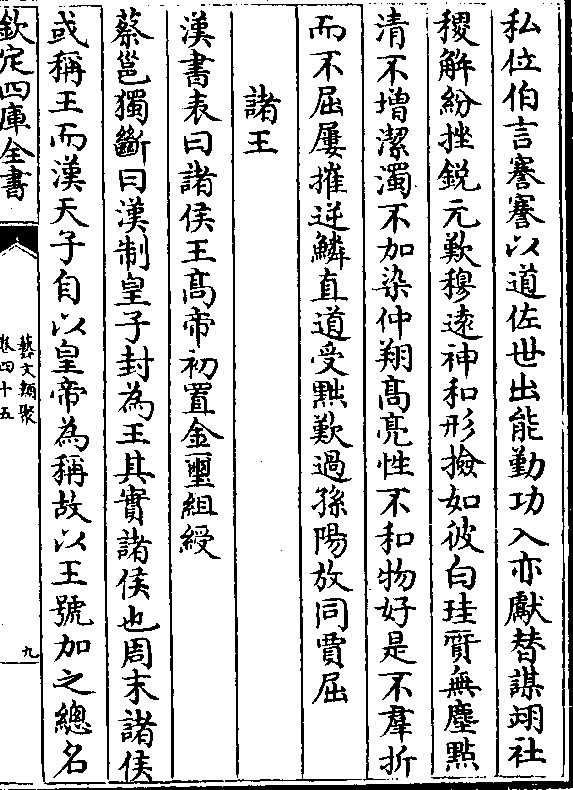 私位伯言謇謇以道佐世出能勤功入亦獻替謀翊社
稷解紛挫鋭元歎穆逺神和形撿如彼白珪質無塵點
清不增潔濁不加染仲翔髙亮性不和物好是不羣折
而不屈屢摧逆鱗直道受黜歎過孫陽放同賈屈
諸王
漢書表曰諸侯王髙帝初置金璽組綬
蔡邕獨斷曰漢制皇子封為王其實諸侯也周末諸侯
或稱王而漢天子自以皇帝為稱故以王號加之總名
欽定四庫全書
藝文類聚
卷四十五
九